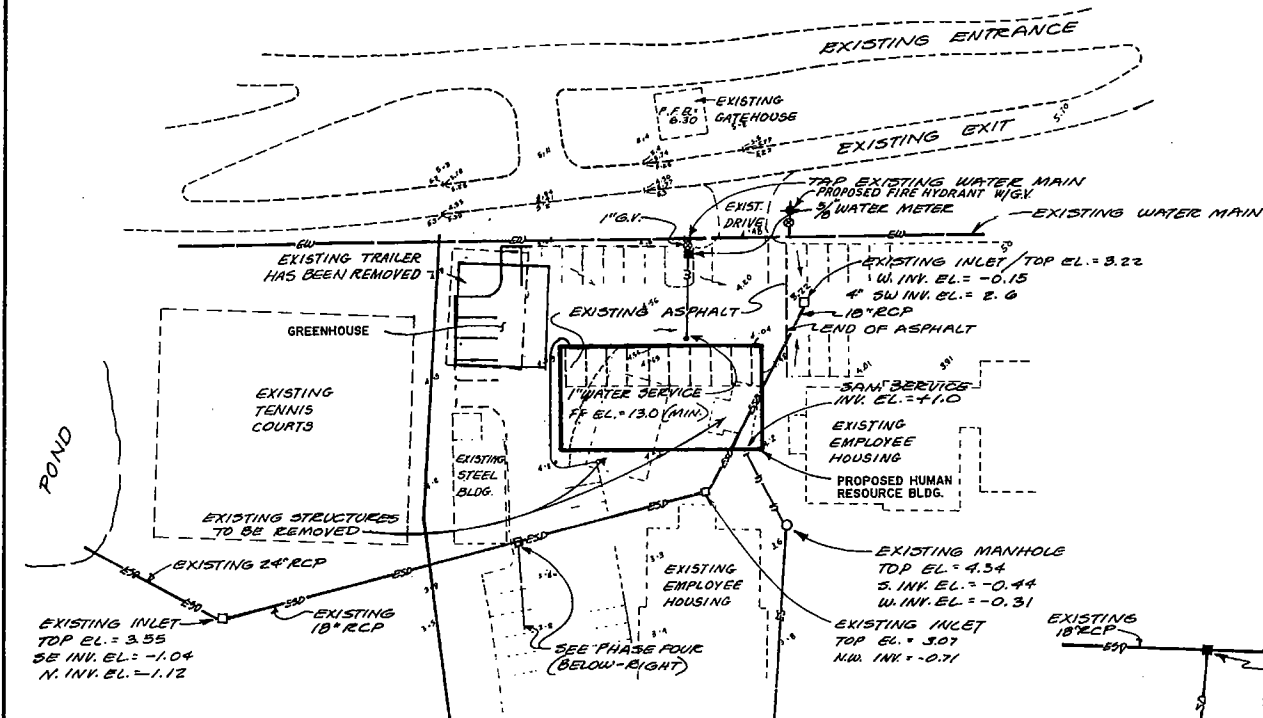 EXISTING ENTRANCE
F.F.E.=
6.30
EXISTING
GATEHOUSE
EXISTING EXIT
5.10
TAP EXISTING WATER MAIN
PROPOSED FIRE HYDRANT W/G.V.
5/8" WATER METER
EXISTING WATER MAIN
1" G.V.
EXIST.
DRIVE
EW
EW
EW
EXISTING TRAILER
HAS BEEN REMOVED
EXISTING INLET / TOP EL. = 3.22
W. INV. EL. = -0.15
4" SW INV. EL. = 2.6
18" RCP
END OF ASPHALT
4.20
3.22
EXISTING ASPHALT
GREENHOUSE
4.04
4.01
3.91
EXISTING
TENNIS
COURTS
1" WATER SERVICE
FF EL. = 13.0 (MIN.)
SAN. SERVICE
INV. EL. = +1.0
EXISTING
EMPLOYEE
HOUSING
POND
EXISTING
STEEL
BLDG.
ESD
PROPOSED HUMAN
RESOURCE BLDG.
EXISTING STRUCTURES
TO BE REMOVED
ESD
EXISTING 24" RCP
ESD
ESD
ESD
ESD
EXISTING
18" RCP
EXISTING INLET
TOP EL. = 3.55
SE INV. EL. = -1.04
N. INV. EL. = -1.12
EXISTING
EMPLOYEE
HOUSING
3.3
3.6
3.4
3.8
EXISTING MANHOLE
TOP EL. = 4.34
S. INV. EL. = -0.44
W. INV. EL. = -0.31
EXISTING INLET
TOP EL. = 3.07
N.W. INV. = -0.71
SEE PHASE FOUR
(BELOW-RIGHT)
EXISTING
18" RCP
ESD